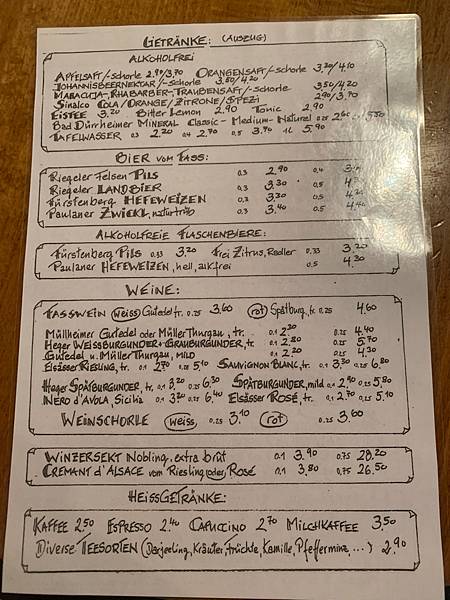 GETRÄNKE: (AUSZUG)
ALKOHOLFREI
APFELSAFT/-schorle 2.90/3.70 ORANGENSAFT/-schorle 3.20/4.10
JOHANNISBEERNEKTAR/-schorle 3.50/4.20
MARACUJA-, RHABARBER-, TRAUBENSAFT/-schorle 3.50/4.20
Sinalco COLA/ORANGE/ZITRONE/SPEZI 2.90/3.70
EISTEE 3.20 Bitter Lemon 2.90 Tonic 2.90
Bad Dürrheimer MINERAL Classic - Medium - Naturel 0.25 2.60
TAFELWASSER 0.3 2.20 0.4 2.70 0.5 3.70 1L 5.90
BIER VOM FASS:
Riegeler Felsen PILS 0.3 2.90 0.4
Riegeler LANDBIER 0.3 3.30 0.5
Fürstenberg HEFEWEIZEN 0.3 3.30 0.5
Paulaner ZWICKL, naturtrüb 0.3 3.40 0.5 4.40
ALKOHOLFREIE FLASCHENBIERE:
Fürstenberg Pils 0.33 3.20 Frei Zitrus, Radler 0.33 3.20
Paulaner HEFEWEIZEN, hell, alk.frei 0.5 4.30
WEINE:
FASSWEIN weiss Gutedel tr. 0.25 3.60 rot Spätburg., tr. 0.25 4.60
Müllheimer Gutedel oder Müller Thurgau, tr. 0.1 2.20 0.25 4.40
Heger WEISSBURGUNDER + GRAUBURGUNDER, tr. 0.1 2.80 0.25 5.70
Gutedel u. Müller Thurgau, MILD 0.1 2.20 0.25 4.30
Elsässer RIESLING, tr. 0.1 2.70 0.25 5.10 SAUVIGNON BLANC, tr. 0.1 3.30 0.25 6.80
Heger SPÄTBURGUNDER, tr. 0.1 3.20 0.25 6.30 SPÄTBURGUNDER, mild 0.1 2.90 0.25 5.80
NERO d'AVOLA, Sicilia 0.1 3.20 0.25 6.40 Elsässer ROSÉ, tr. 0.1 2.70 0.25 5.10
WEINSCHORLE weiss 0.25 3.10 rot 0.25 3.60
WINZERSEKT Nobling, extra brüt 0.1 3.90 0.75 28.20
CREMANT d'ALSACE vom Riesling oder ROSÉ 0.1 3.80 0.75 26.50
HEISSGETRÄNKE:
KAFFEE 2.50 ESPRESSO 2.40 CAPUCCINO 2.70 MILCHKAFFEE 3.50
Diverse TEESORTEN (Darjeeling, Kräuter, Früchte, Kamille, Pfefferminz, ...) 2.90